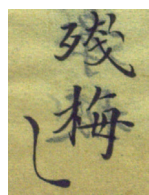 残梅
し